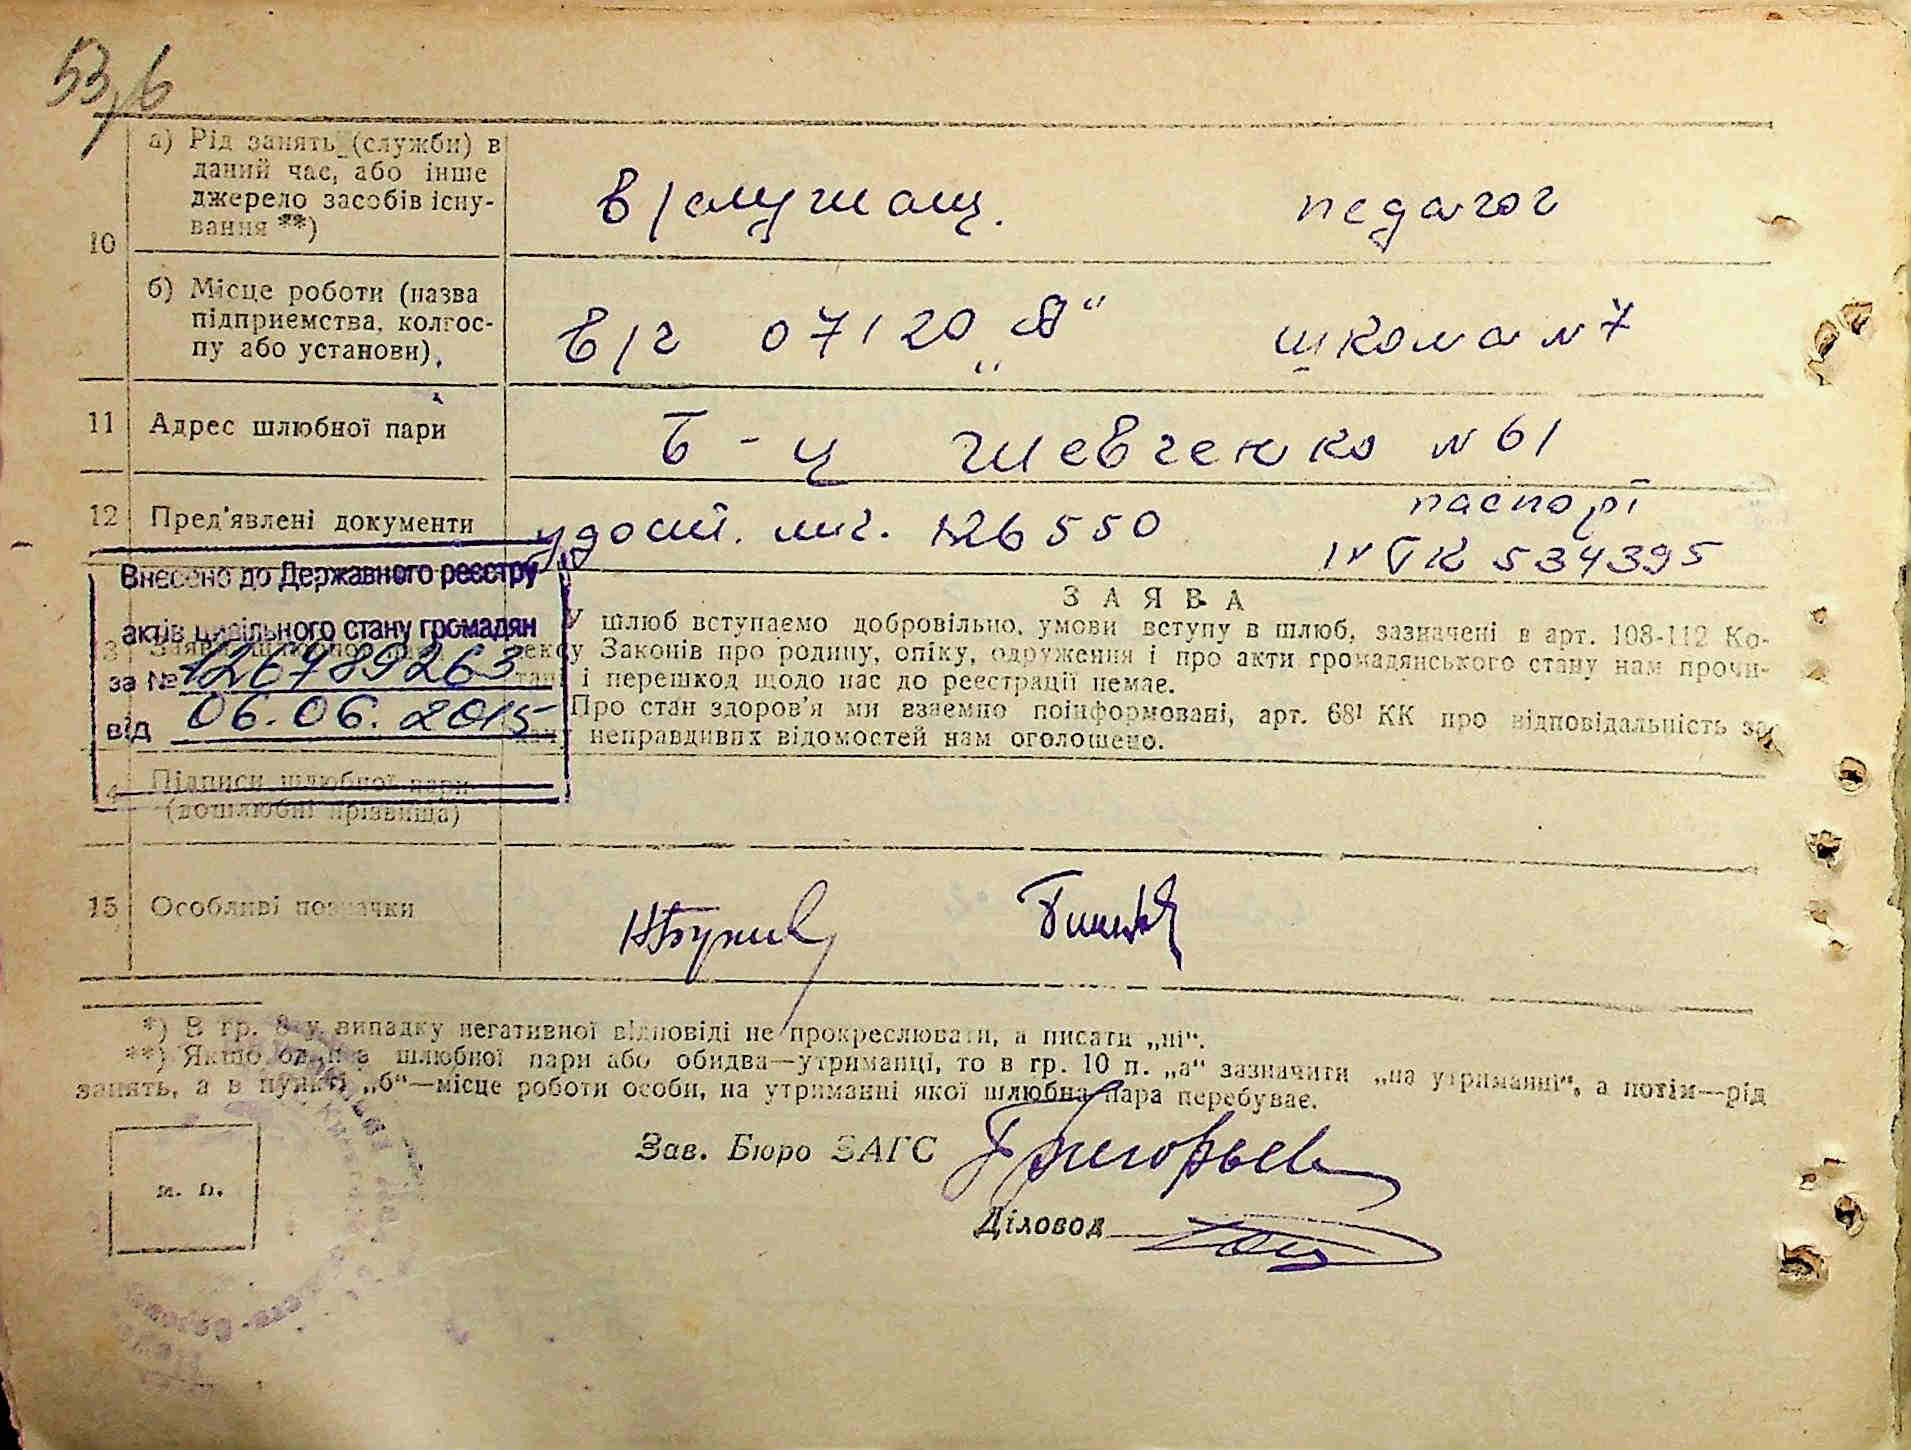 53,б
а) Рід занять (служби) в
даний час, або інше
джерело засобів існу-
вання **)
в/служащ. педагог
10
б) Місце роботи (назва
підприємства, колгос-
пу або установи).
в/ч 07120 „Я“ школа N 7
11 Адрес шлюбної пари
Б-Ц Шевченко N 61
12 Пред'явлені документи
удост. лич. 126550 паспорт
IV ГК 534395
Внесено до Державного реєстру
актів цивільного стану громадян
за № 126789263
від 06.06.2015
ЗАЯВА
У шлюб вступаємо добровільно, умови вступу в шлюб, зазначені в арт. 108-112 Ко-
дексу Законів про родину, опіку, одруження і про акти громадянського стану нам прочи-
тані і перешкод щодо нас до реєстрації немає.
Про стан здоров'я ми взаємно поінформовані, арт. 68¹ КК про відповідальність за
дачу неправдивих відомостей нам оголошено.
4 Підписи шлюбної пари
(дошлюбні прізвища)
15 Особливі позначки
*) В гр. 8 у випадку негативної відповіді не прокреслювати, а писати „ні“.
**) Якщо один з шлюбної пари або обидва—утриманці, то в гр. 10 п. „а“ зазначити „на утриманні“, а потім—рід
занять, а в пункті „б“—місце роботи особи, на утриманні якої шлюбна пара перебуває.
Зав. Бюро ЗАГС Григорьев
Діловод
м. п.